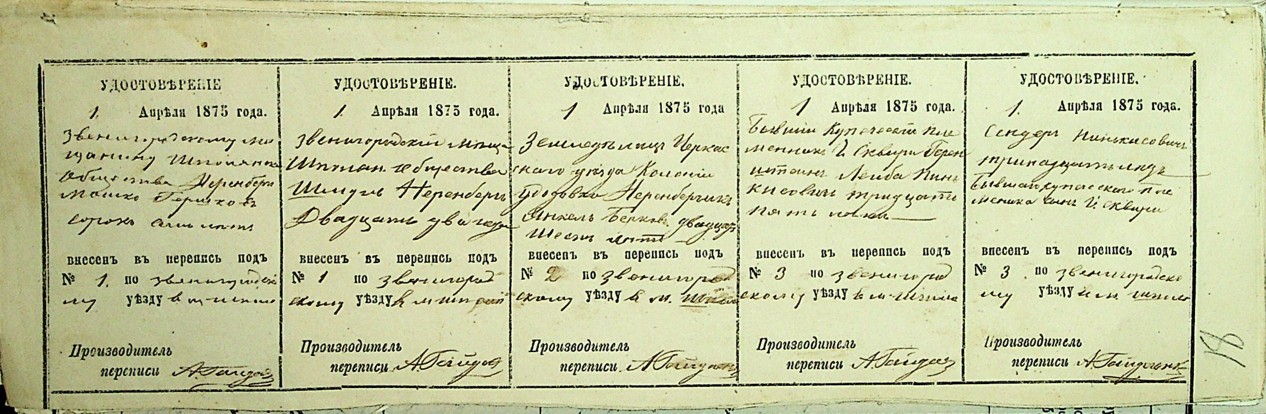 УДОСТОВѢРЕНІЕ
1 Апрѣля 1875 года.
Звенигородскому Мѣ
щанину Шполянск
Общества Неренберг
Мошко Гершков
сорокъ семь лѣтъ
внесенъ въ перепись подъ
№ 1. по звенигородско
му уѣзду в м.
Производитель
переписи
УДОСТОВѢРЕНІЕ.
1 Апрѣля 1875 года.
Звенигородскій мѣща
Шполян. общества
Неренбергъ
Двадцать два года
внесенъ въ перепись подъ
№ 1 по звенигород
скому уѣзду в м
Производитель
переписи
УДОСТОВѢРЕНІЕ.
1 Апрѣля 1875 года
Земледѣлецъ Черкас
скаго уѣзда Колоніи
Неренбергъ
Янкель Берков двадцать
Шесть лѣтъ
внесенъ въ перепись подъ
№ 2 по звенигород
скому уѣзду в м. Шпола
Производитель
переписи
УДОСТОВѢРЕНІЕ.
1 Апрѣля 1875 года.
Бывшій Купеческій пле
менник Г. Сквири
Лейба Пинь
касовичъ тридцать
пять
внесенъ въ перепись подъ
№ 3 по звенигород
скому уѣзду в м Шпола
Производитель
переписи
УДОСТОВѢРЕНІЕ.
1. Апрѣля 1875 года.
Сендеръ Пинькасовичъ
тринадцать
Бывшаго купеческаго пле
меника Г. Сквири
внесенъ въ перепись подъ
№ 3. по звенигородско
му уѣзду в м. Шпола
Производитель
переписи
18